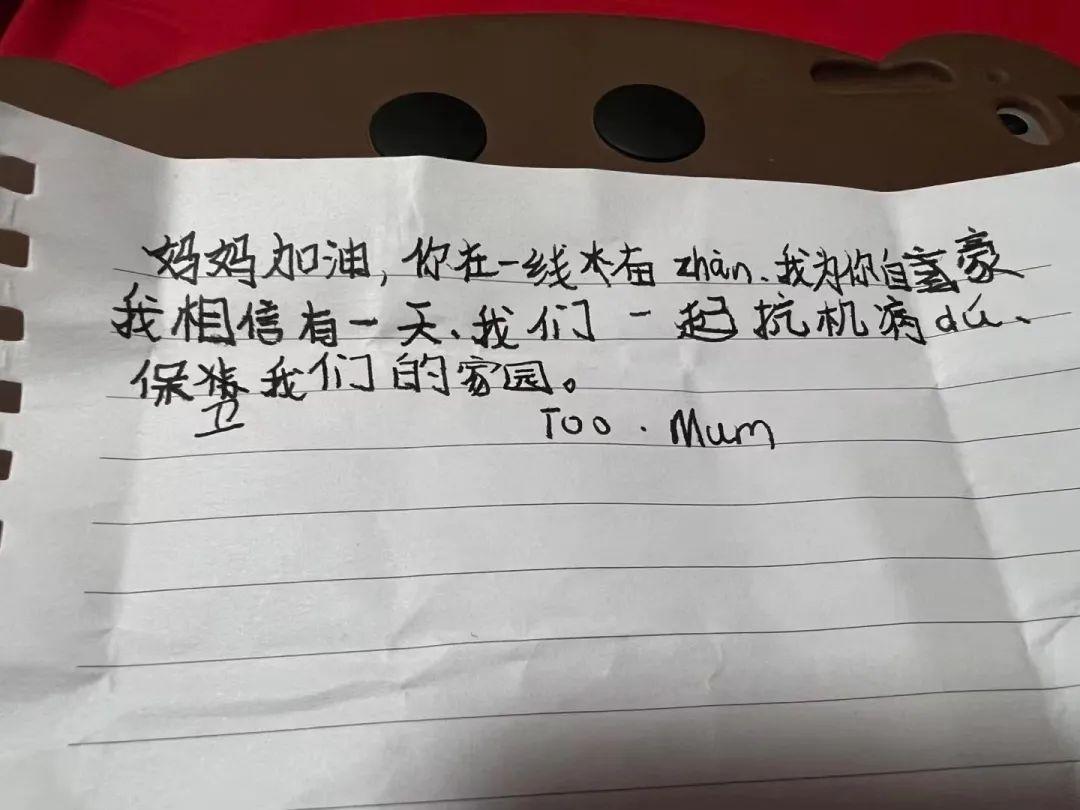 妈妈加油,你在一线木有zhàn、我为你自豪
我相信有一天、我们一起抗机病dú、
保卫我们的家园。
Too . Mum